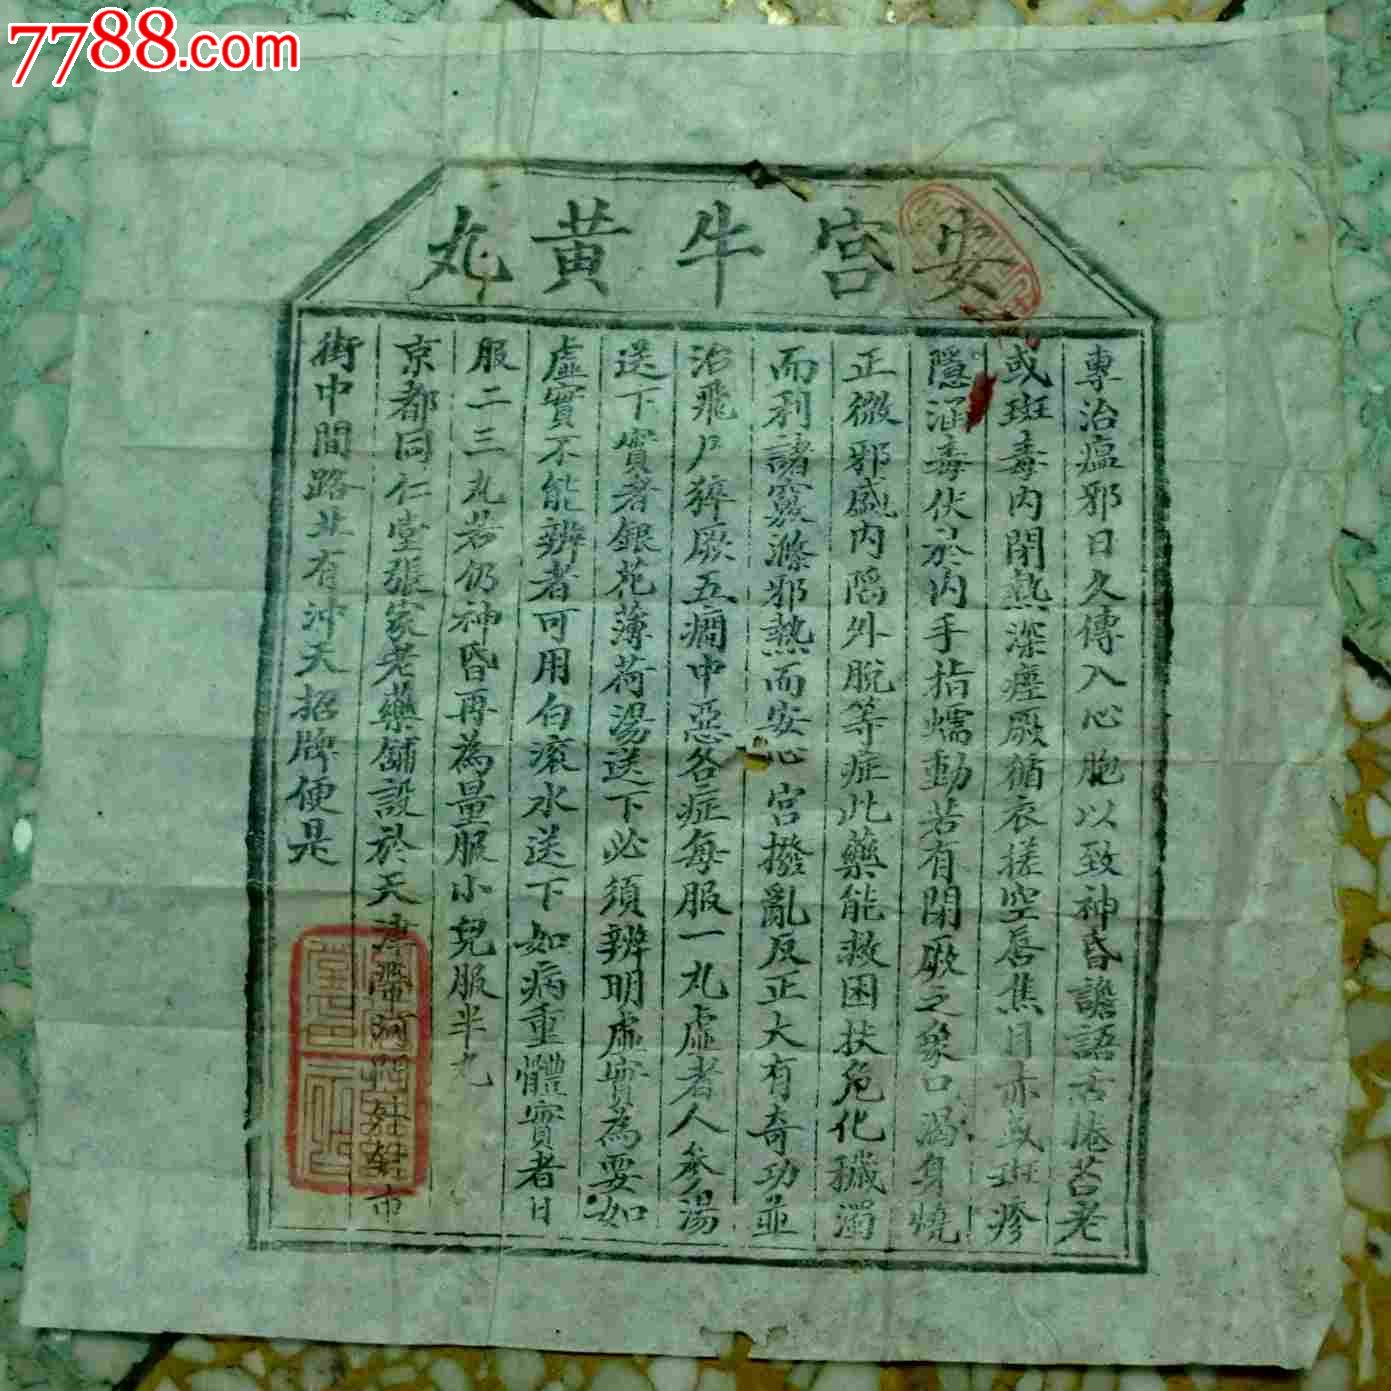 7788.com
安宮牛黃丸
專治瘟邪日久傳入心胞以致神昏譫語舌捲苔老
或斑毒内閉熱深痙厥循衣搓空唇焦目赤或斑疹
隱涵毒伏於内手指蠕動若有閉厥之象口渴身燒
正微邪盛内陷外脫等症此藥能救困扶危化穢濁
而利諸竅滌邪熱而安心宮撥亂反正大有奇功並
治飛尸猝厥五癇中惡各症每服一丸虛者人參湯
送下實者銀花薄荷湯送下必須辨明虛實為要如
虛實不能辨者可用白滚水送下如病重體實者日
服二三丸若仍神昏再為量服小兒服半丸
京都同仁堂張家老藥舖設於天津河市
街中間路北有沖天招牌便是